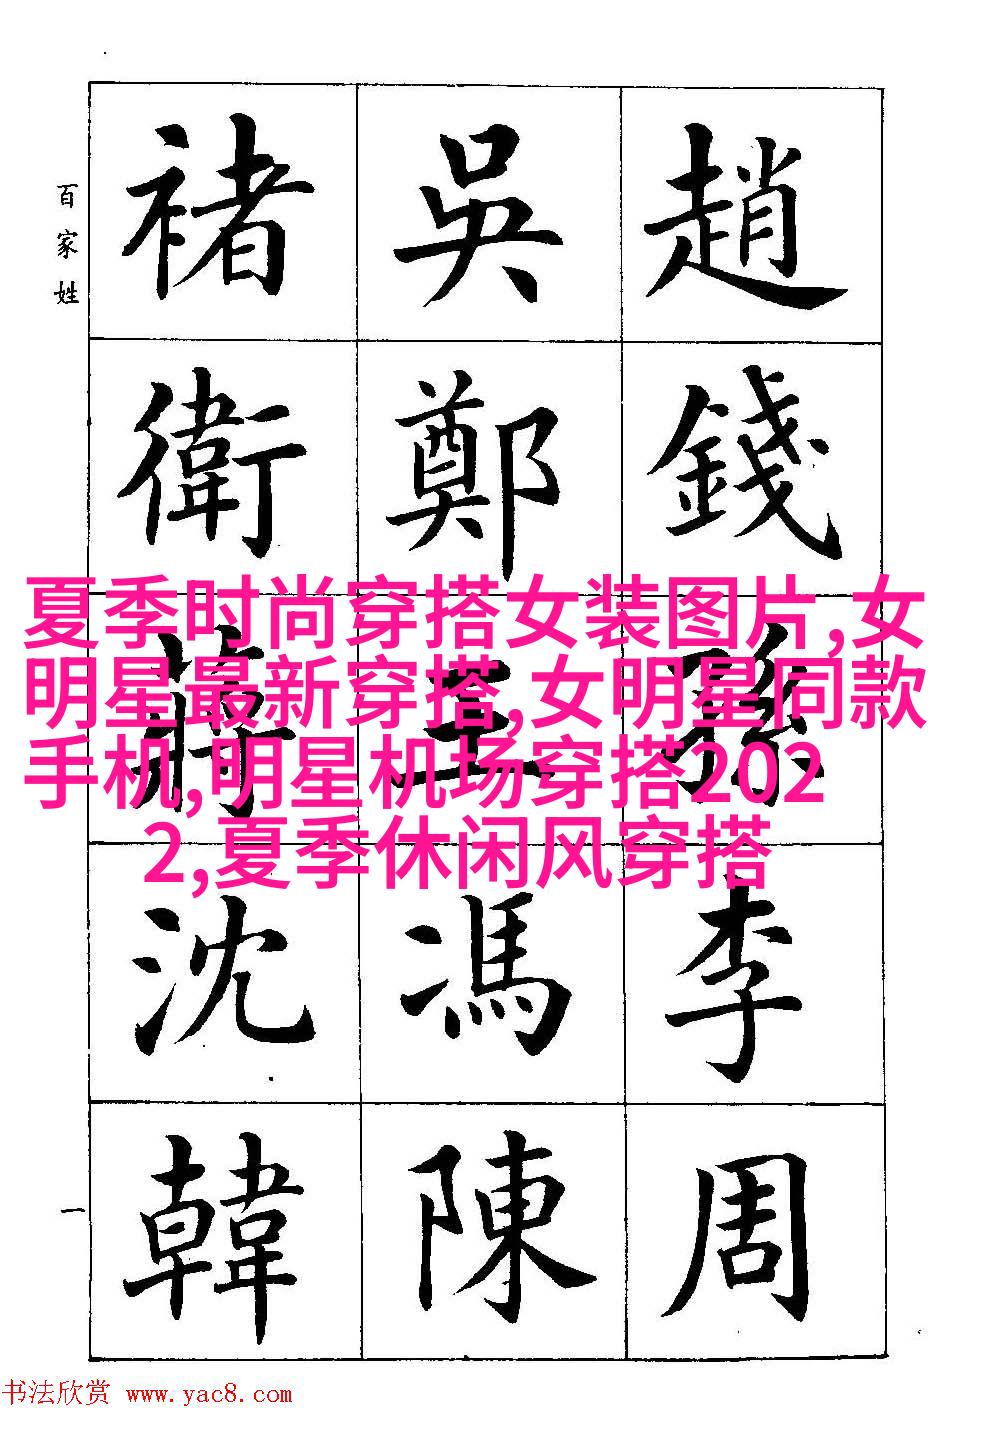 百家姓
趙錢孫李周
吳鄭王馮陳
褚衛蔣沈韓
一
夏季时尚穿搭女装图片,女
明星最新穿搭,女明星同款
手机,明星机场穿搭202
2,夏季休闲风穿搭
书法欣赏 www.yac8.com